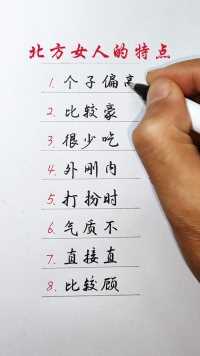 北方女人的特点
1. 个子偏高
2. 比较豪
3. 很少吃
4. 外刚内
5. 打扮时
6. 气质不
7. 直接直
8. 比较顾